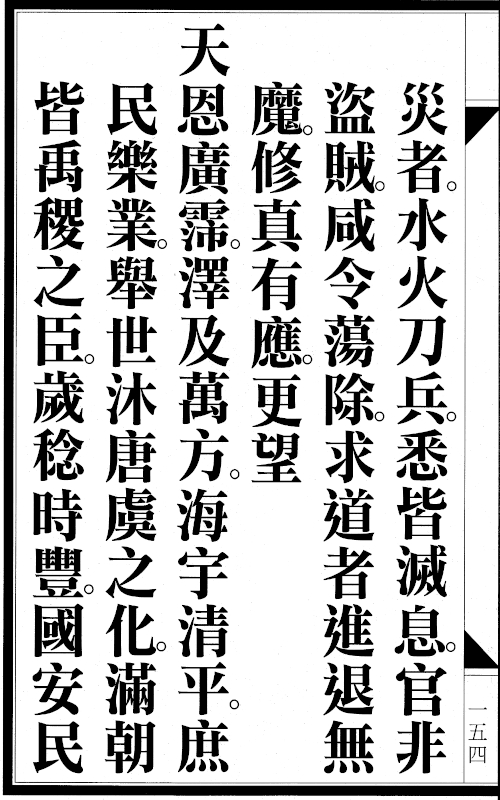 災者。水火刀兵。悉皆滅息。官非
盜賊。咸令蕩除。求道者進退無
魔。修真有應。更望
天恩廣霈。澤及萬方。海宇清平。庶
民樂業。舉世沐唐虞之化。滿朝
皆禹稷之臣。歲稔時豐。國安民
一五四